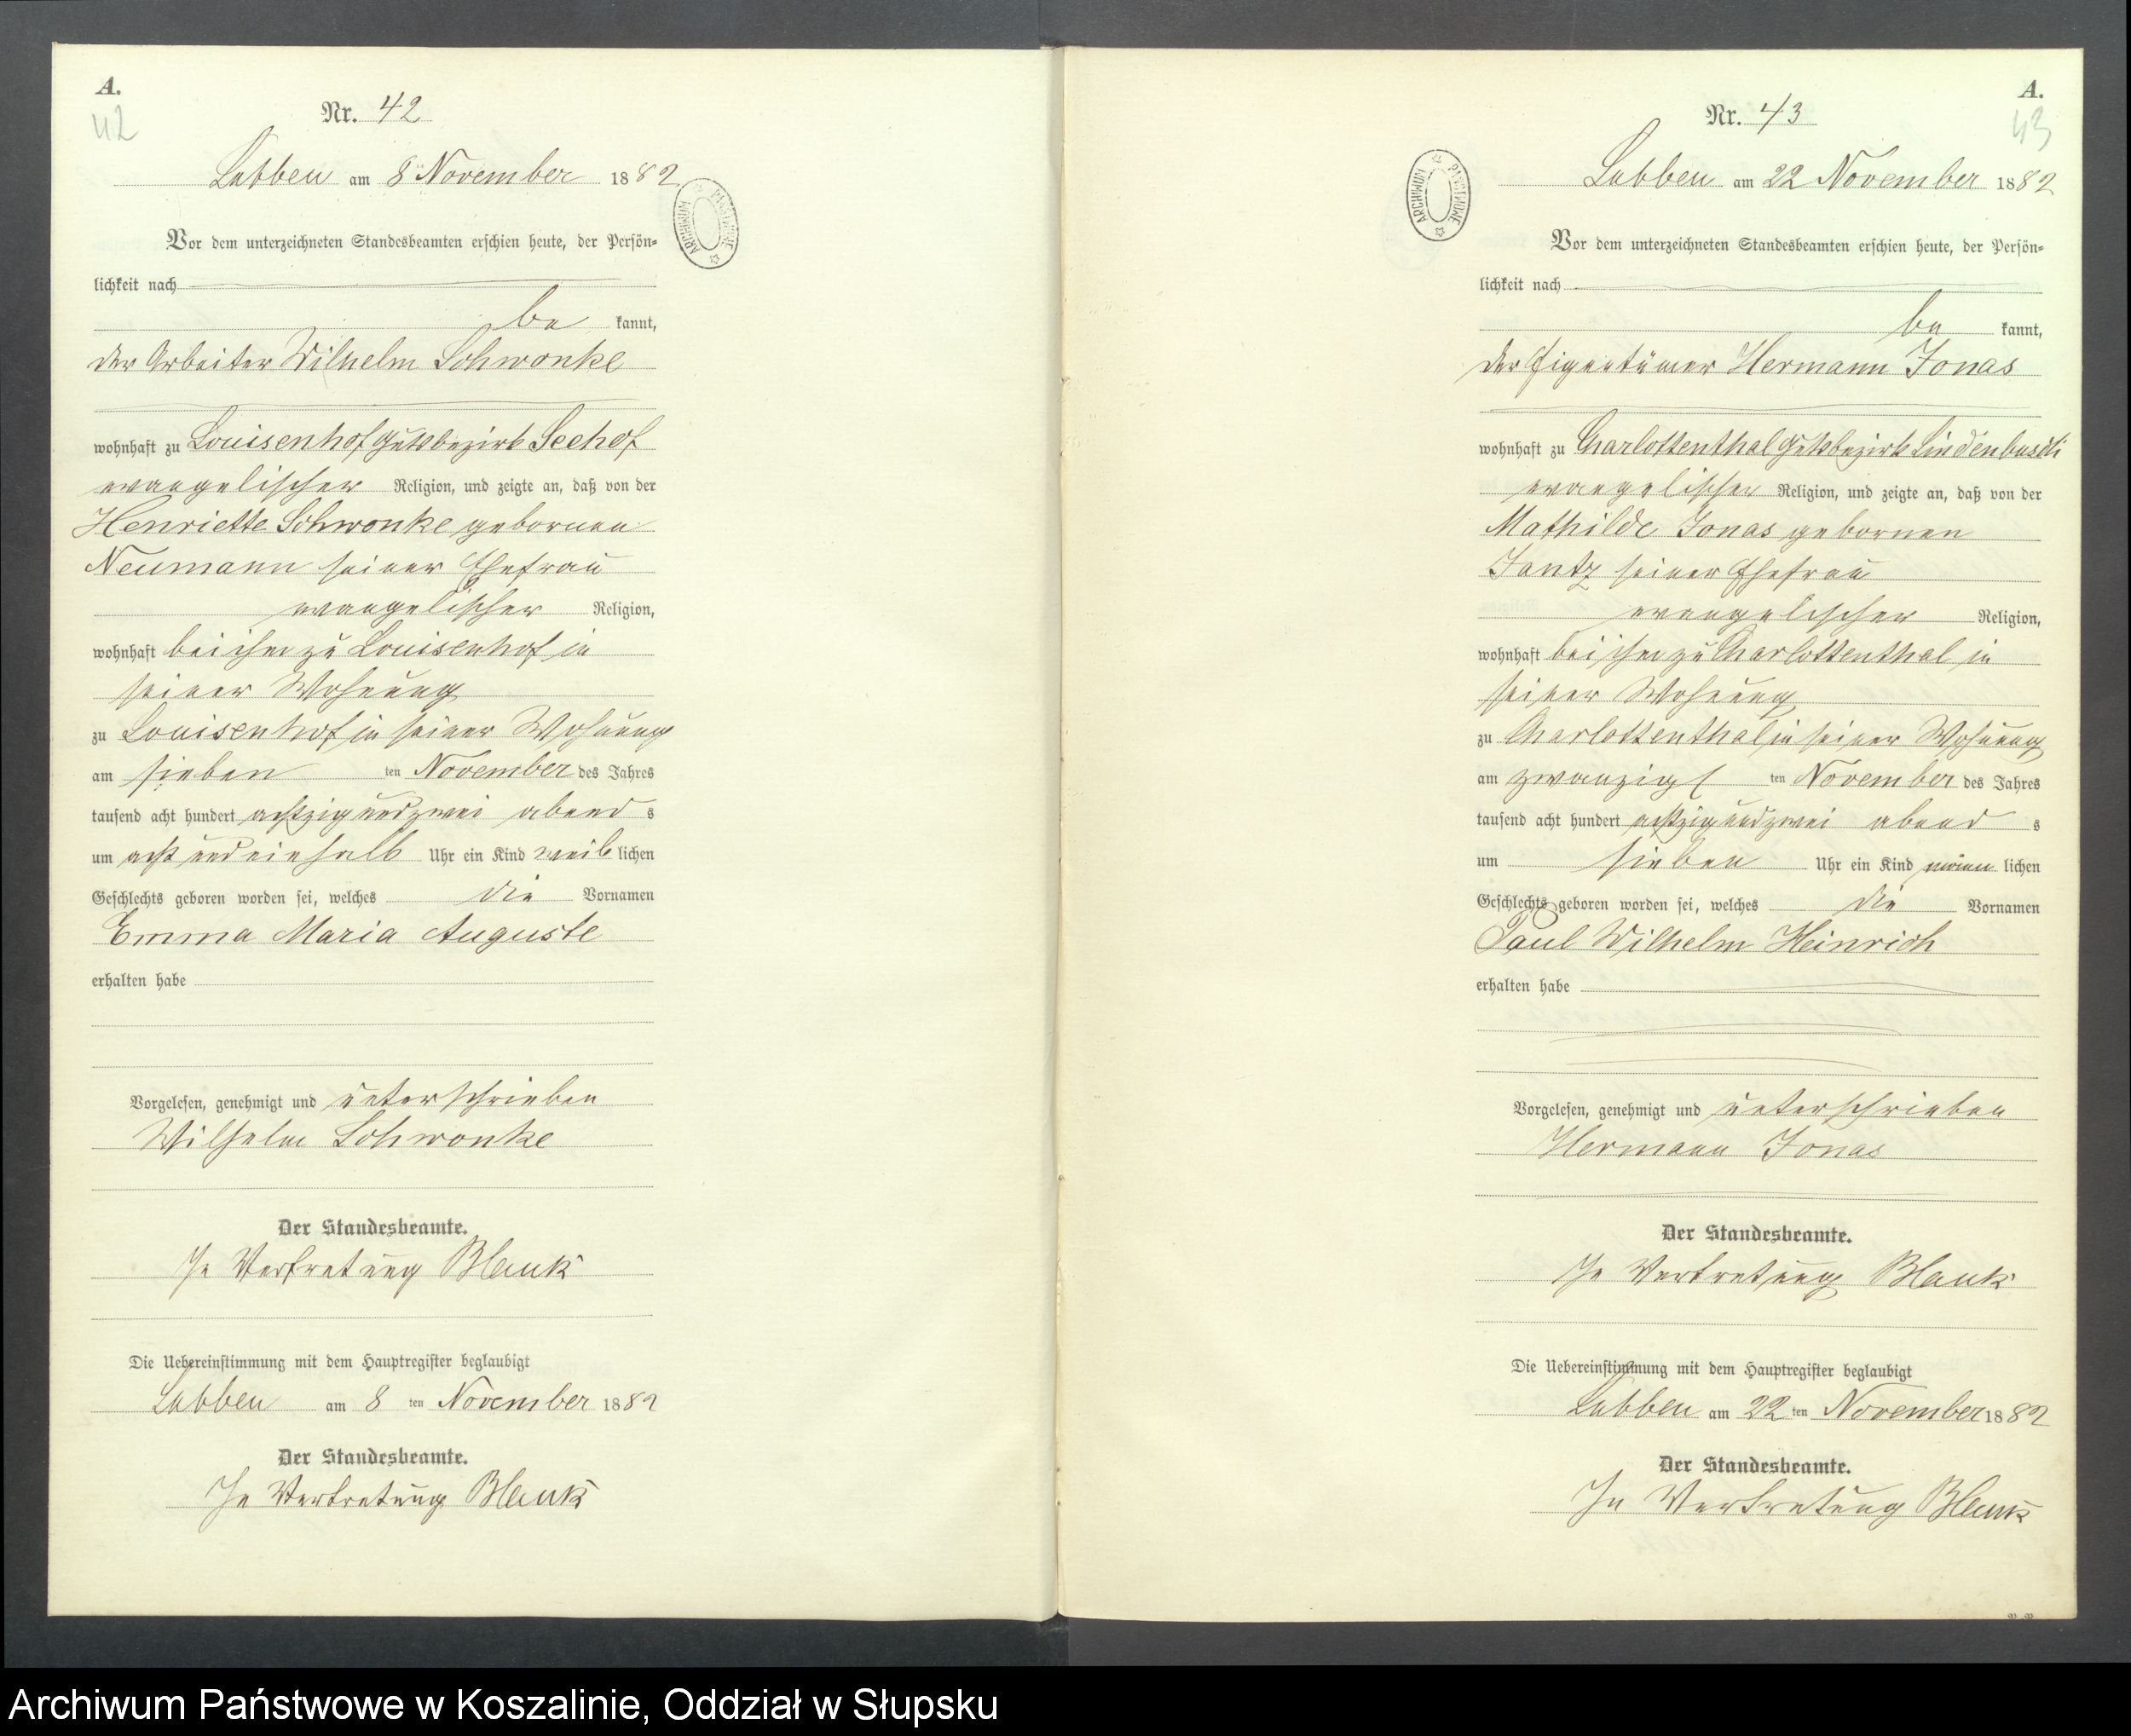 A.
42
Nr. 42
Lubben am 8ten November 1882
ARCHIWUM PAŃSTWOWE
Vor dem unterzeichneten Standesbeamten erschien heute, der Persön-
lichkeit nach
be kannt,
der Arbeiter Wilhelm Schwonke
wohnhaft zu Louisenhof Gutsbezirk Seehof
evangelischer Religion, und zeigte an, daß von der
Henriette Schwonke gebornen
Neumann seiner Ehefrau
evangelischer Religion,
wohnhaft bei ihm zu Louisenhof in
seiner Wohnung
zu Louisenhof in seiner Wohnung
am sieben ten November des Jahres
tausend acht hundert achtzig und zwei abend s
um acht und ein halb Uhr ein Kind weib lichen
Geschlechts geboren worden sei, welches die Vornamen
Emma Maria Auguste
erhalten habe
Vorgelesen, genehmigt und unterschrieben
Wilhelm Schwonke
Der Standesbeamte.
In Vertretung Blank
Die Uebereinstimmung mit dem Hauptregister beglaubigt
Lubben am 8 ten November 1882
Der Standesbeamte.
In Vertretung Blank
A.
43
Nr. 43
Lubben am 22 November 1882
ARCHIWUM PAŃSTWOWE
Vor dem unterzeichneten Standesbeamten erschien heute, der Persön-
lichkeit nach
be kannt,
der Eigentümer Hermann Jonas
wohnhaft zu Charlottenthal Gutsbezirk Lindenbusch
evangelischer Religion, und zeigte an, daß von der
Mathilde Jonas gebornen
Jantz seiner Ehefrau
evangelischer Religion,
wohnhaft bei ihm zu Charlottenthal in
seiner Wohnung
zu Charlottenthal in seiner Wohnung
am zwanzigs ten November des Jahres
tausend acht hundert achtzig und zwei abend s
um sieben Uhr ein Kind männ lichen
Geschlechts geboren worden sei, welches die Vornamen
Paul Wilhelm Heinrich
erhalten habe
Vorgelesen, genehmigt und unterschrieben
Hermann Jonas
Der Standesbeamte.
In Vertretung Blank
Die Uebereinstimmung mit dem Hauptregister beglaubigt
Lubben am 22 ten November 1882
Der Standesbeamte.
In Vertretung Blank
Archiwum Państwowe w Koszalinie, Oddział w Słupsku